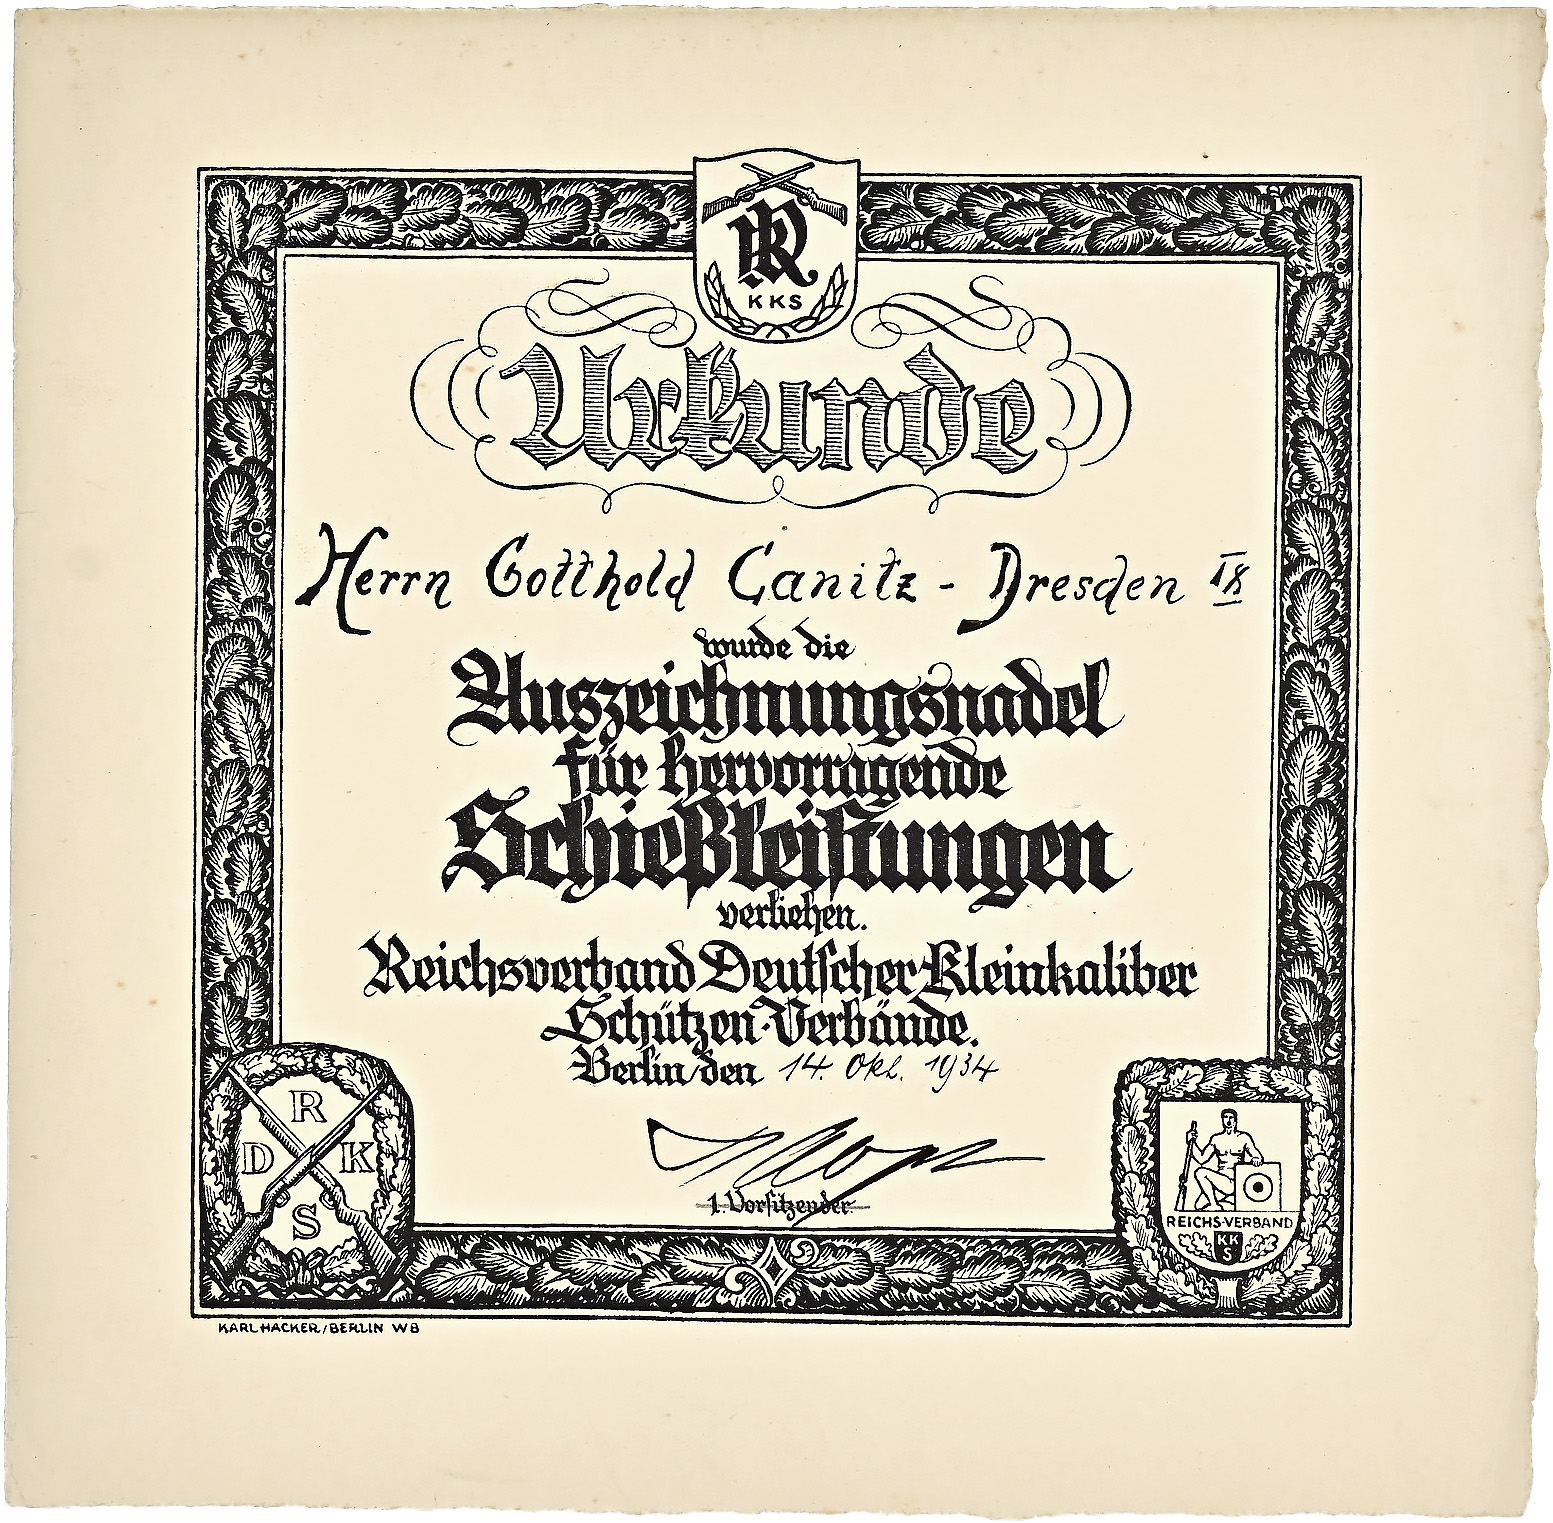 R
KKS
Urkunde
Herrn Gotthold Canitz - Dresden
wurde die
Auszeichnungsnadel
für hervorragende
Schießleistungen
verliehen.
Reichsverband Deutscher Kleinkaliber
Schützen-Verbände.
Berlin den 14. Okt. 1934
1. Vorsitzender
R
D K
S
REICHS-VERBAND
KK
S
KARL HACKER/BERLIN W8